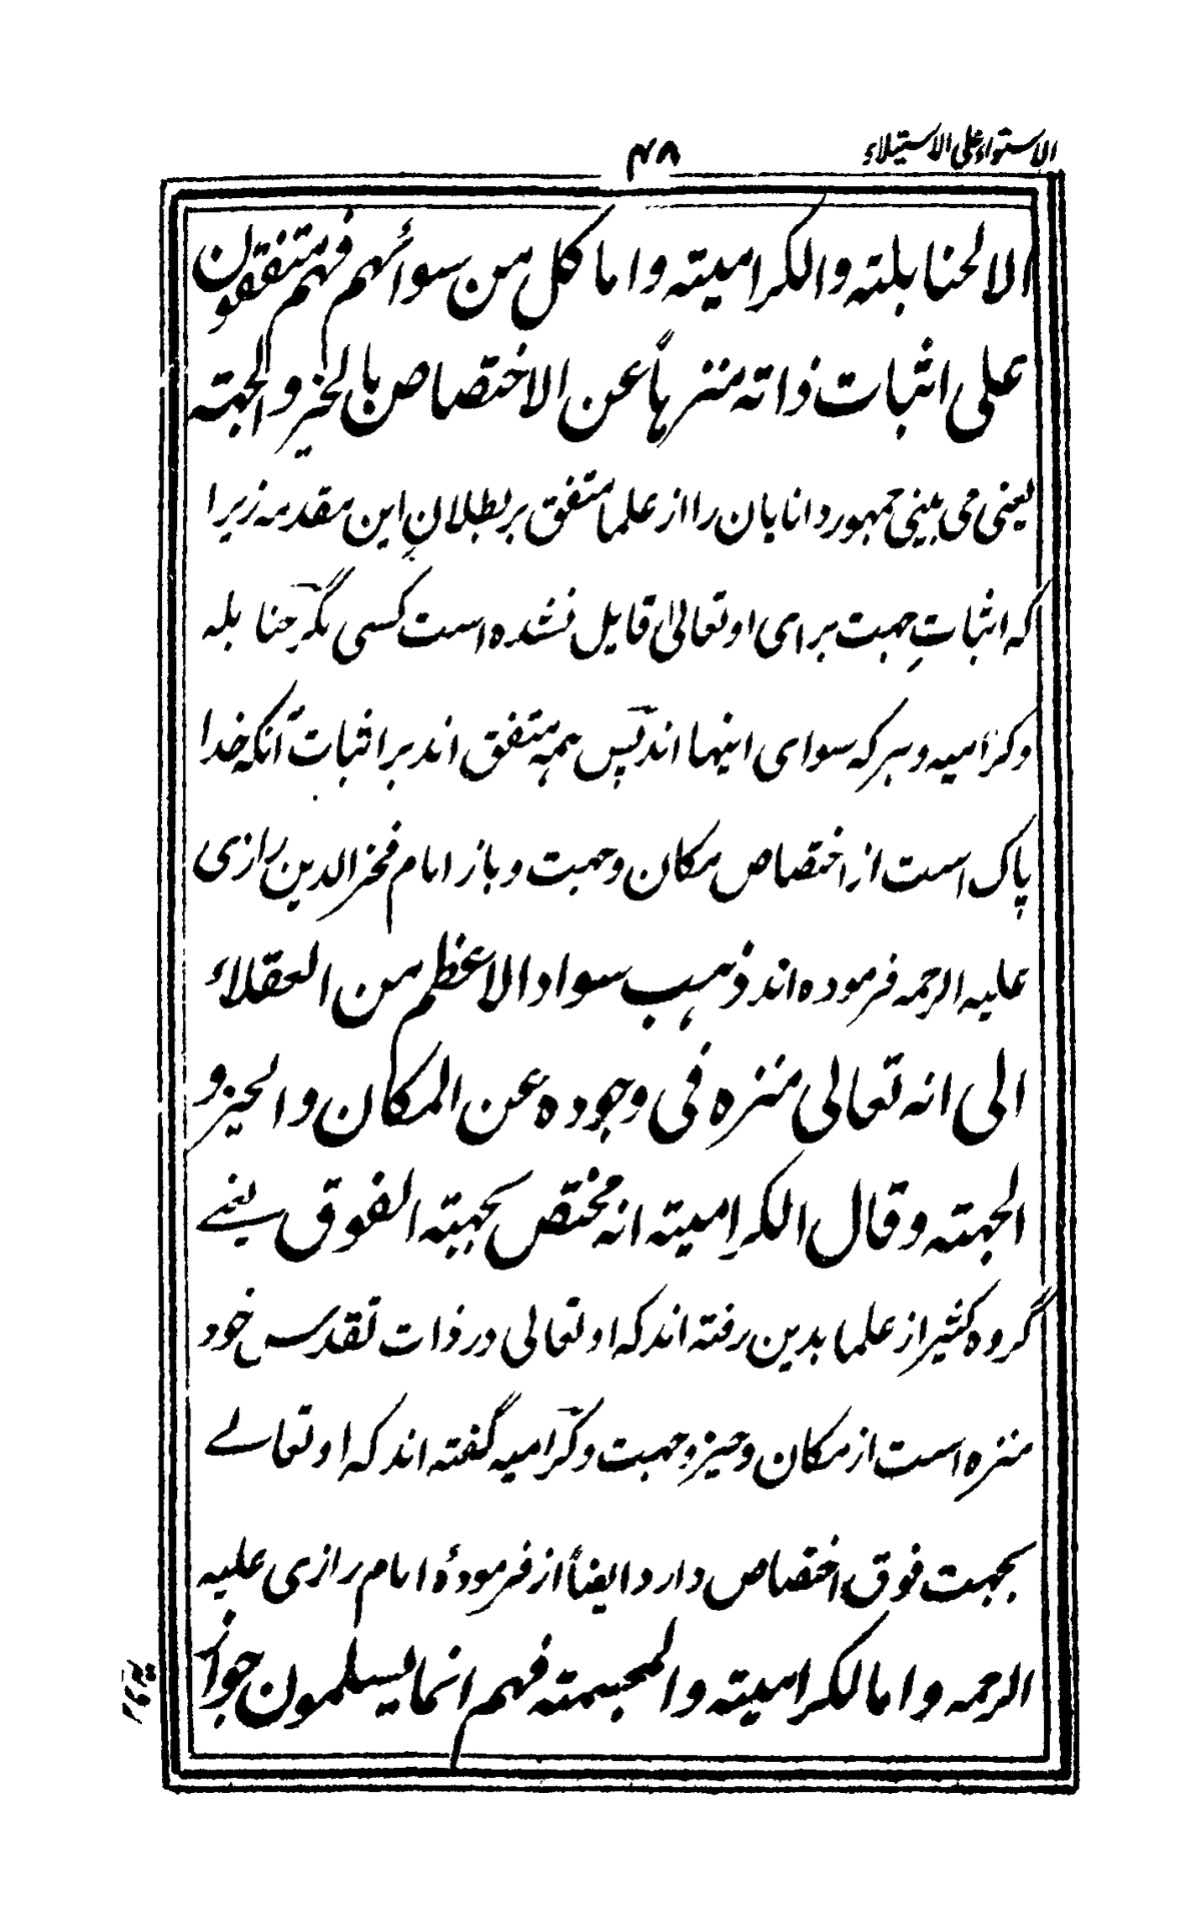 الاستواء علی الاستیلاء
۴۸
الا لحنابلته والکرامیته واما کل من سوائهم فهم متفقون
علی اثبات ذاته منزهاً عن الاختصاص بالحیز والجهته
یعنی می بینی جمهور دانایان را از علما متفق بر بطلانِ این مقدمه زیرا
که اثباتِ جهت برای او تعالیٰ قایل نشده است کسی مگر حنابله
و کرّامیه و هر که سوای اینها اند پس همه متفق اند بر اثبات آنکه خدا
پاک است از اختصاص مکان و جهت و باز امام فخر الدین رازی
علیه الرحمه فرموده اند ذهب سواد الاعظم من العقلاء
الی انه تعالی منزه فی وجوده عن المکان والحیز و
الجهته وقال الکرامیته انه مختص بجهته الفوق یعنے
گروه کثیر از علما بدین رفته اند که او تعالی در ذات تقدس خود
منزه است از مکان و حیز و جهت و کرّامیه گفته اند که او تعالے
بجهت فوق اختصاص دارد ایضاً از فرمودهٔ امام رازی علیه
الرحمه واما لکرامیته والمجسمته فهم انما یسلمون جواز